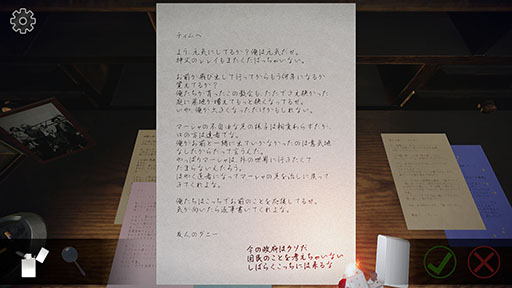 ティムへ
よう、元気にしてるか？俺は元気だぜ。
神父のレイもまだくたばっちゃいない。
お前が飛び出して行ってからもう何年になるか
覚えてるか？
俺たちが育ったこの教会も、ただでさえ狭かった
庭に墓地が増えてもっと狭くなってるぜ。
いや、俺が大きくなっただけかもしれない。
マーシャの不自由な足の様子は相変わらずだが、
口の方は達者でな。
俺がお前と一緒に出ていかなかったのは意気地
なしだからだって言うんだ。
やっぱりマーシャは、外の世界に行きたくて
たまらないんだろう。
はやく医者になってマーシャの足を治しに戻って
きてくれよな。
俺たちはこっちでお前のことを応援してるぜ。
気が向いたら返事書いてくれよな。
友人のダニー
今の政府はクソだ
国民のことを考えちゃいない
しばらくこっちには来るな